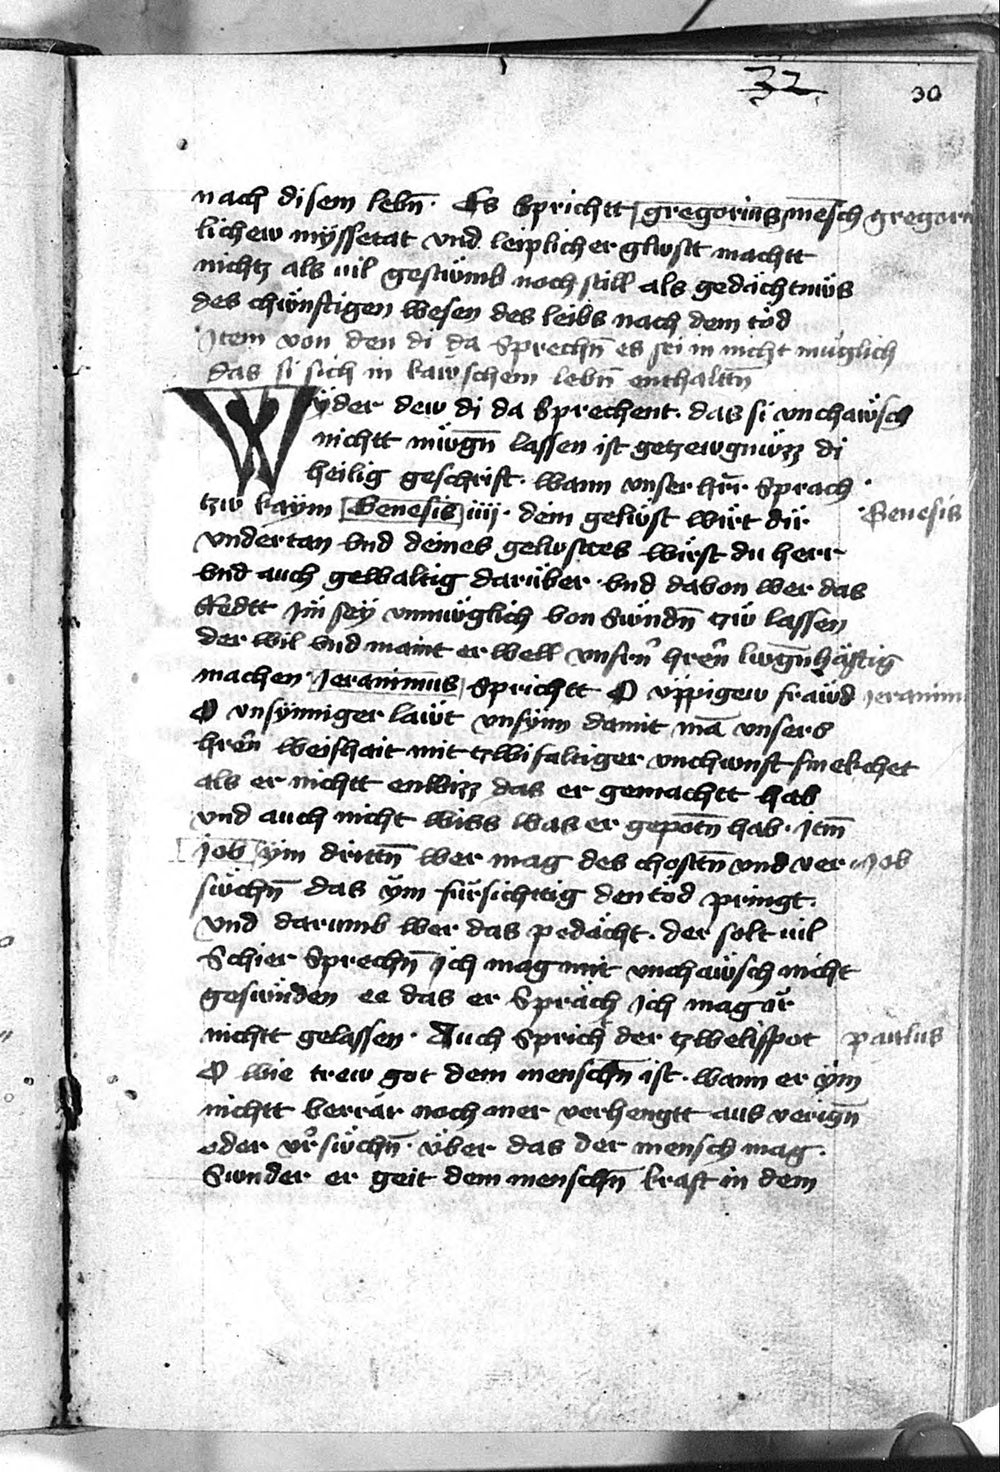 32
30
nach disem lebn̄. Es sprichtt gregorius mēsch gregori
lichew myssetat vnd leiplicher glwstt machtt
nichtz als uil gestwͤmb noch still als gedaͤchtnwͤs
des chwͤnftigen wesen des leibs nach dem toͤd
Item von den di da sprechn̄ es sei in nicht muͤglich
das si sich in kawschem lebn̄ enthalttn̄
Wyder dew di da sprechent. das si vnchawͤsch
nichtt mwͤgn̄ lassen ist getzewgnwͤzz di
heilig geschrift. wann vnser hr̄r sprach
tzw kaym Genesis iiij. dem gelwͤst wirt dir
Genesis
vndertan vnd deines gelwsttes wirst du herr
vnd auch gewaltig daruͤber. vnd dauon wer das
Redtt im sey vnmwͤglich von swͤndn̄ tzw lassen
der wil vnd maint er well vnsrn̄ hren̄ lwgn̄häftig
machen. Jeranimus sprichtt O vppigew frawͤd
Jeranim
O vnsynniger lawͤt vnsynn damit mā vnsers
hren̄ weishait mit tzwifaltiger vnchwnst smekchet
als er nichtt enwizz das er gemachtt hab
vnd auch nicht wiss was er gepotn̄ hab. Jtm̄
Job ym drittn̄ wer mag des chosttn̄ vnd ver
Job
swͤchn̄ das ym fuͤrsichttig den toͤd pringt.
vnd darumb wer das pedaͤcht. der solt uil
schier sprechn̄ Ich mag mit vnchawͤsch nicht
geswinden ee das er spraͤch Ich mag ir
nichtt gelassen. Auch sprich der tzwelifpot
paulus
O wie trew got dem menschn̄ ist. wann er ym
nichtt verrär noch mer verhengtt aus verign̄
oder vrswͤchn̄. vͤber das der mensch mag.
Swnder er geit dem menschn̄ kraft in dem